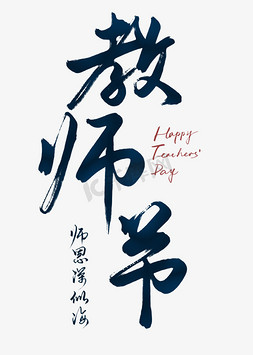 教师节
Happy
Teachers'
Day
师恩深似海